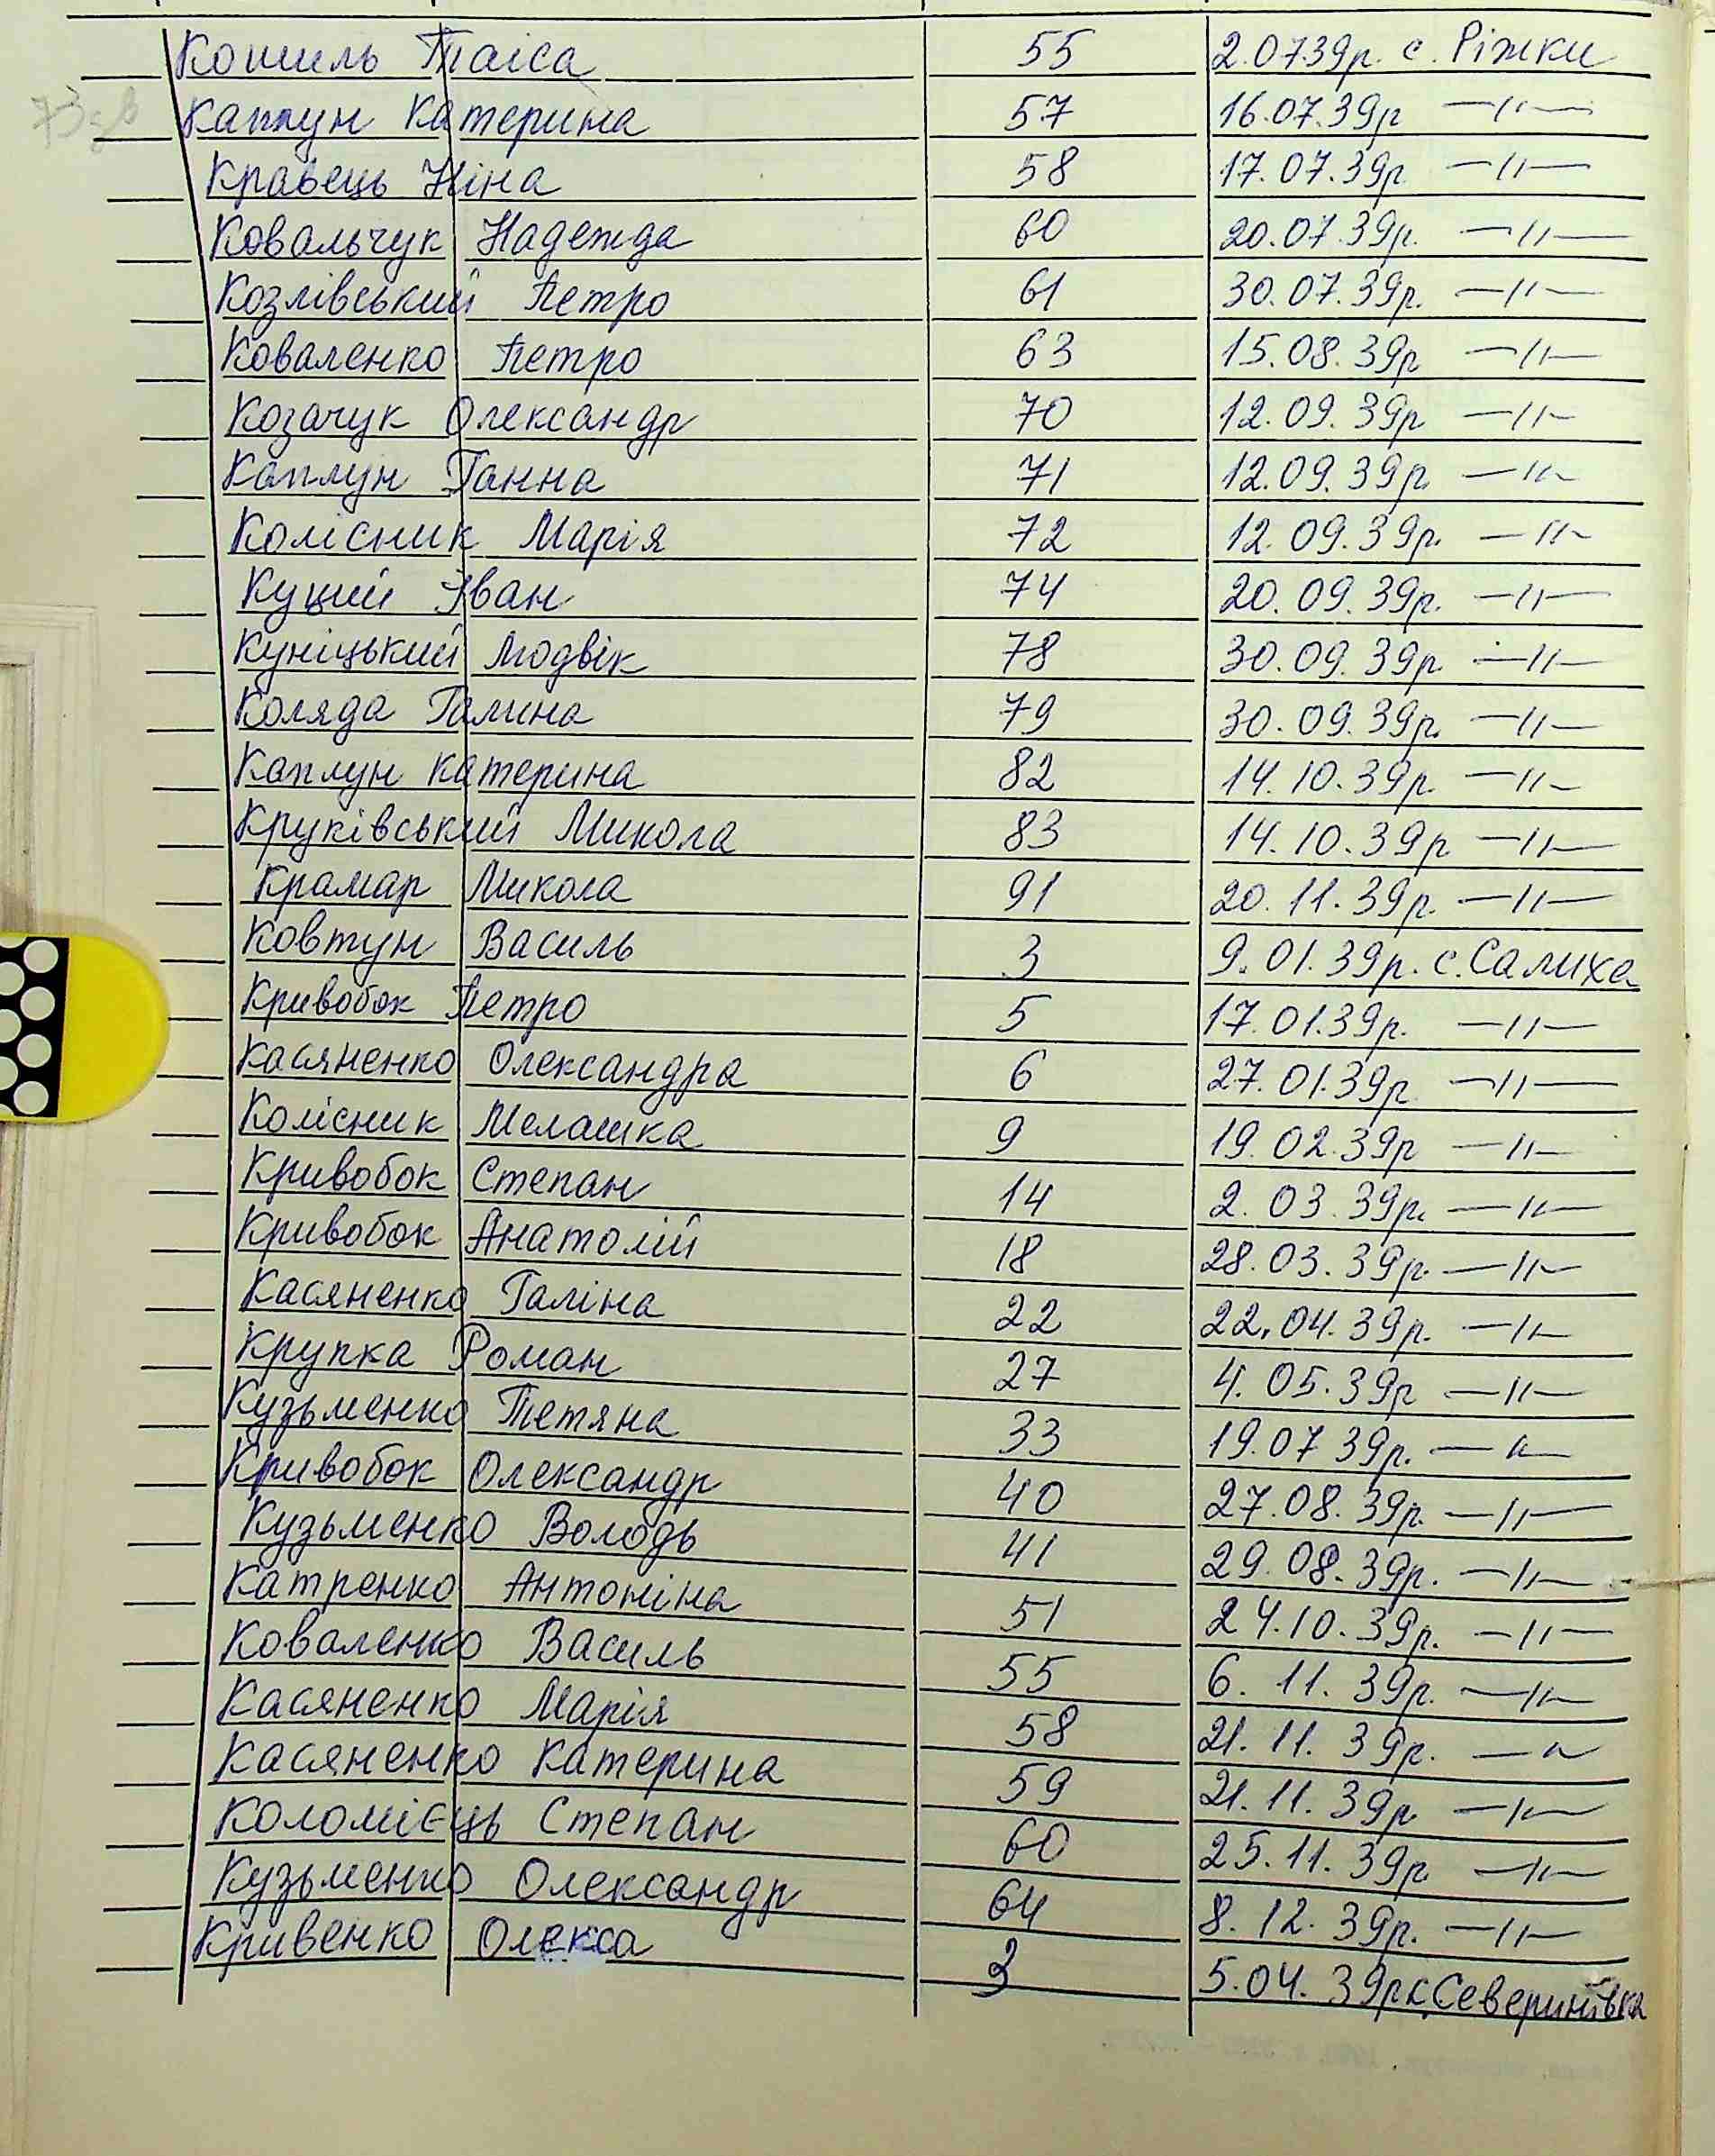 Кошиль Таіса 55 2.07.39р. с. Ріжки
Каплун Катерина 57 16.07.39р —"—
Кравець Ніна 58 17.07.39р —"—
Ковальчук Надежда 60 20.07.39р. —"—
Козлівський Петро 61 30.07.39р. —"—
Коваленко Петро 63 15.08.39р —"—
Козачук Олександр 70 12.09.39р —"—
Каплун Ганна 71 12.09.39р. —"—
Колісник Марія 72 12.09.39р. —"—
Куций Іван 74 20.09.39р. —"—
Куніцький Людвік 78 30.09.39р —"—
Коляда Галина 79 30.09.39р. —"—
Каплун Катерина 82 14.10.39р. —"—
Круківський Микола 83 14.10.39р —"—
Крамар Микола 91 20.11.39р. —"—
Ковтун Василь 3 9.01.39р. с. Салиха
Кривобок Петро 5 17.01.39р. —"—
Касяненко Олександра 6 27.01.39р —"—
Колісник Мелашка 9 19.02.39р —"—
Кривобок Степан 14 2.03.39р. —"—
Кривобок Анатолій 18 28.03.39р. —"—
Касяненко Галіна 22 22.04.39р. —"—
Крупка Роман 27 4.05.39р —"—
Кузьменко Тетяна 33 19.07.39р. —"—
Кривобок Олександр 40 27.08.39р. —"—
Кузьменко Володь 41 29.08.39р. —"—
Катренко Антоніна 51 24.10.39р. —"—
Коваленко Василь 55 6.11.39р. —"—
Касяненко Марія 58 21.11.39р. —"—
Касяненко Катерина 59 21.11.39р. —"—
Коломієць Степан 60 25.11.39р. —"—
Кузьменко Олександр 64 8.12.39р. —"—
Кривенко Олекса 3 5.04.39р с. Северинівка